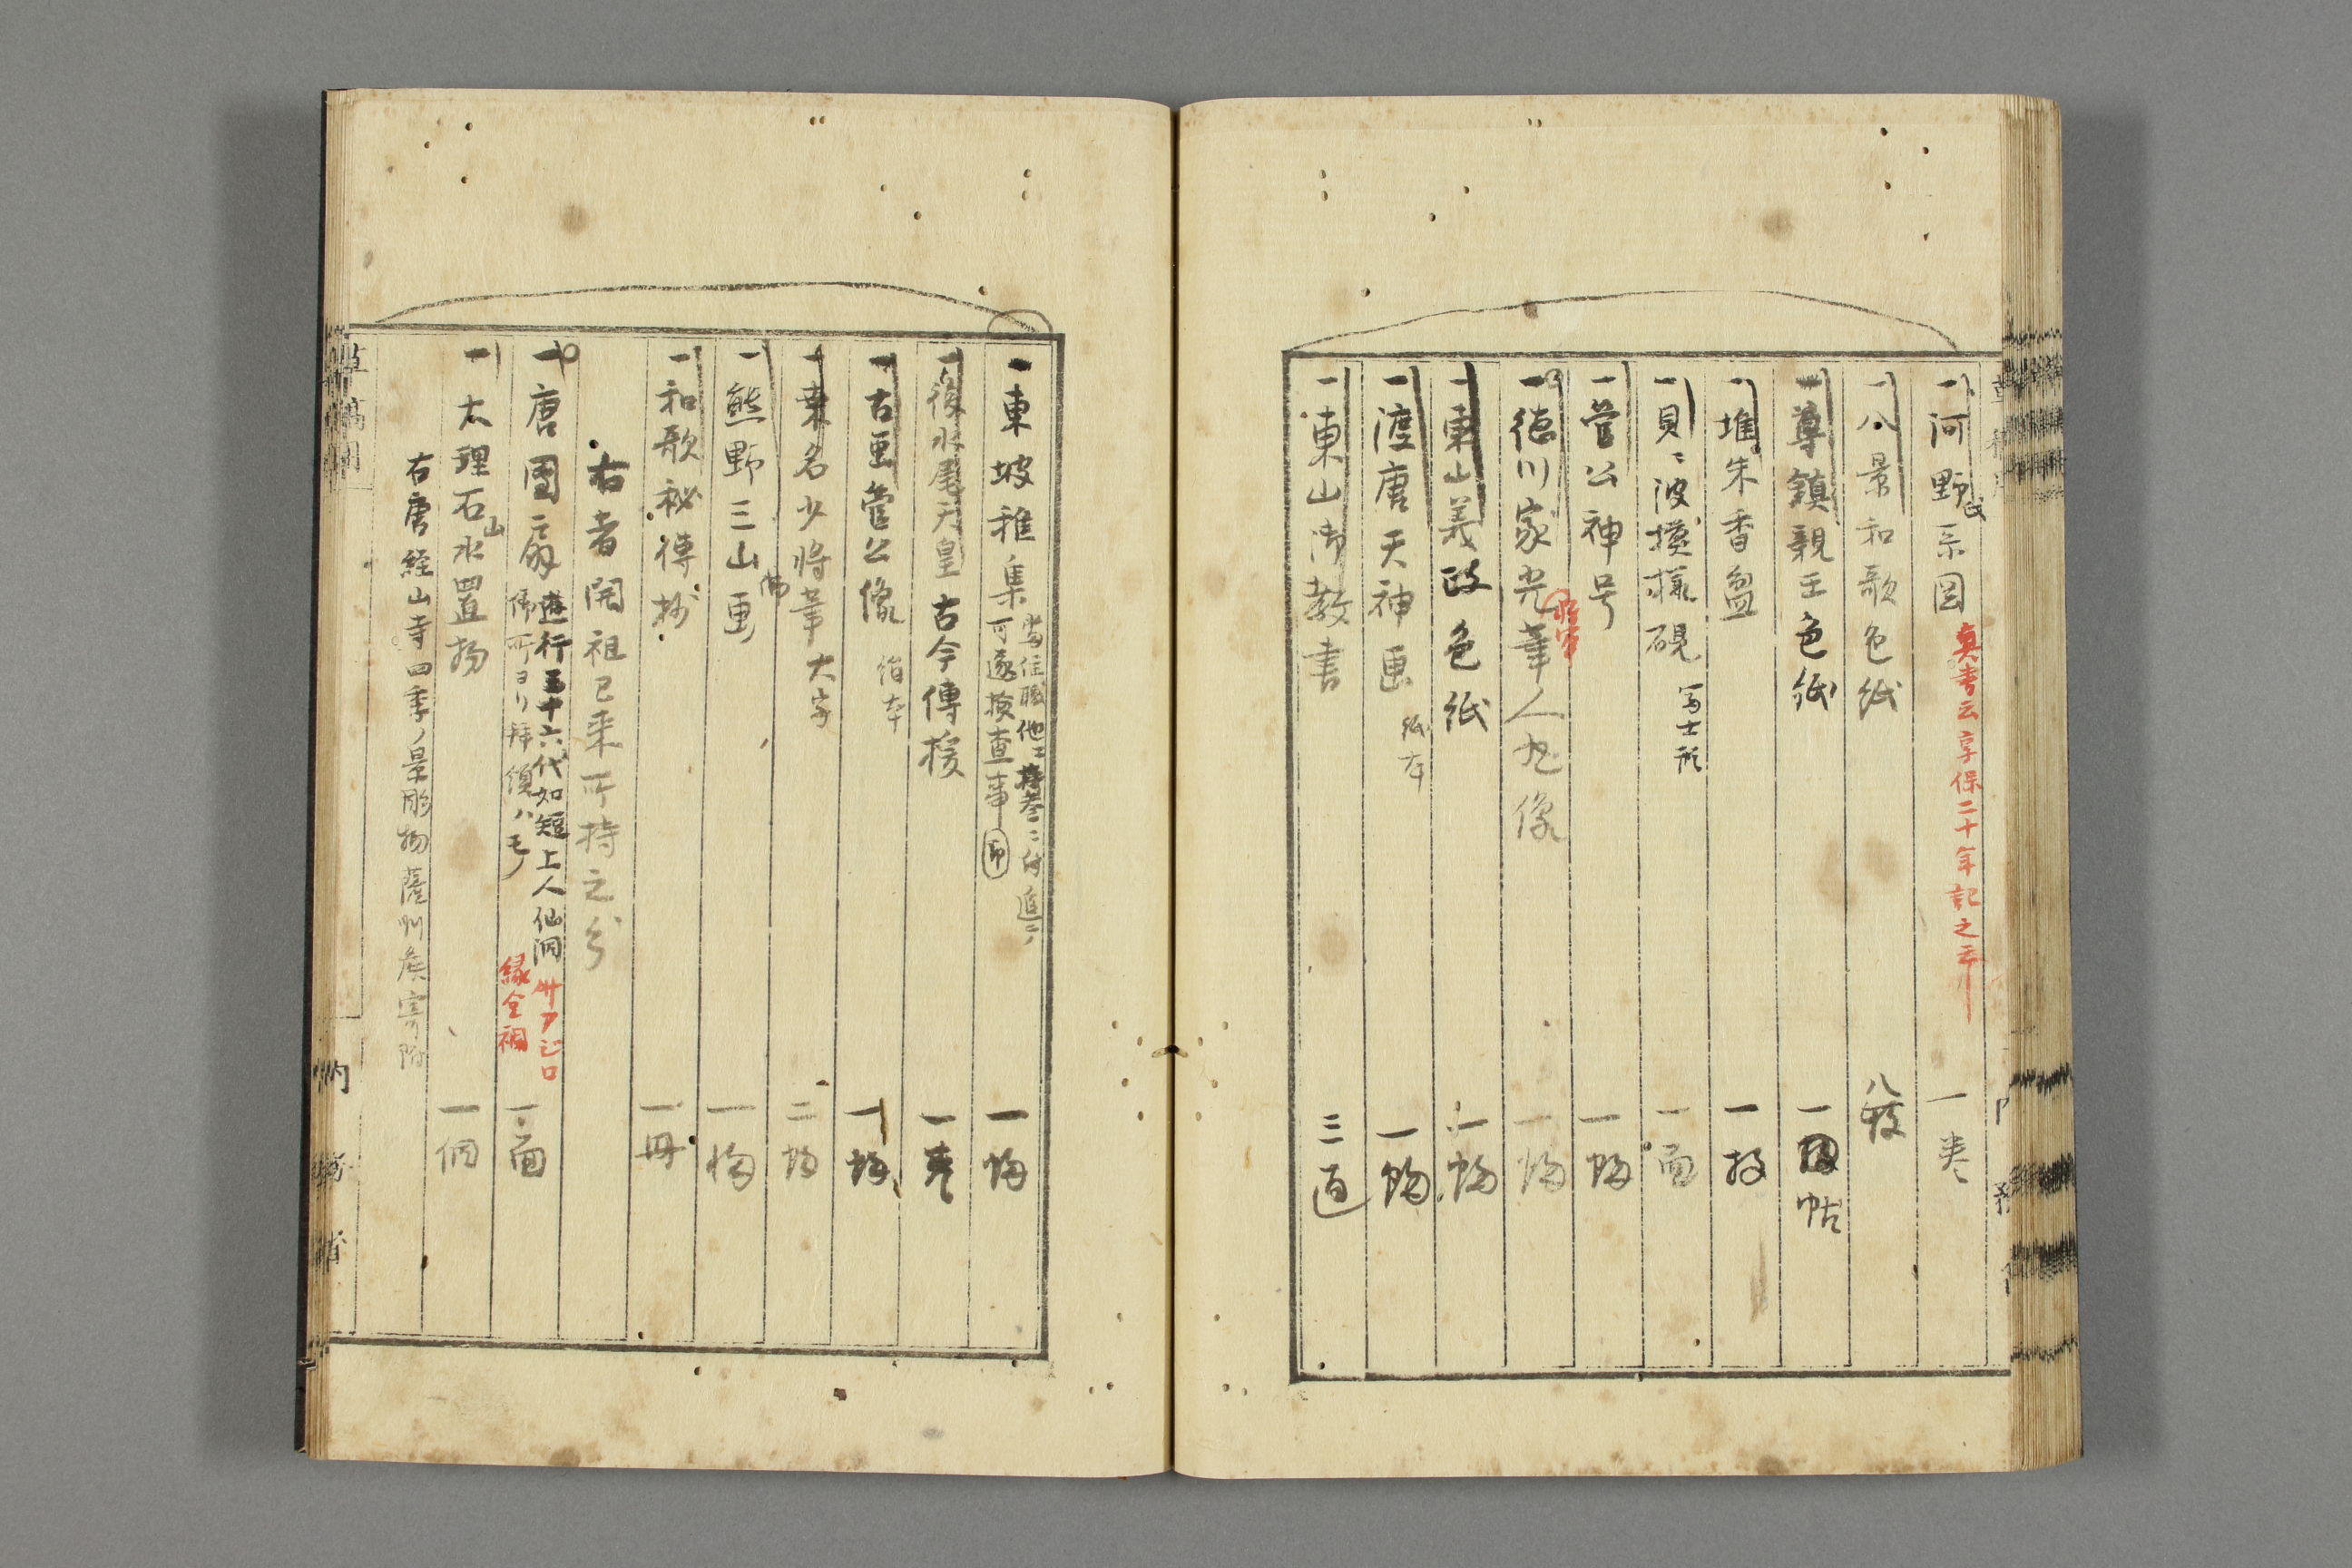 一河野氏系図 奥書云享保二十年記之云〻 一巻
一八景和歌色紙 八枚
一尊鎮親王色紙 一帖
一堆朱香盆 一枚
一貝ニ波模様硯 冨士形 一面
一菅公神号 一幅
一徳川家光筆人丸像 一幅
一東山義政色紙 一幅
一渡唐天神画 紙本 一幅
一東山御教書 三通
一東坡稚集 一幅
一後水尾天皇古今傳授 一巻
一古画菅公像 絹本 一幅
一桑名少将筆大字 二幅
一熊野三山画 一幅
一和歌秘傳抄 一冊
右者開祖已来所持之分
一唐團扇 遊行五十六代如短上人仙洞
御所ヨリ拝領ノモノ 一面
一大理石山水置物 一個
右唐経山寺四季ノ景彫物薩州矦寄附